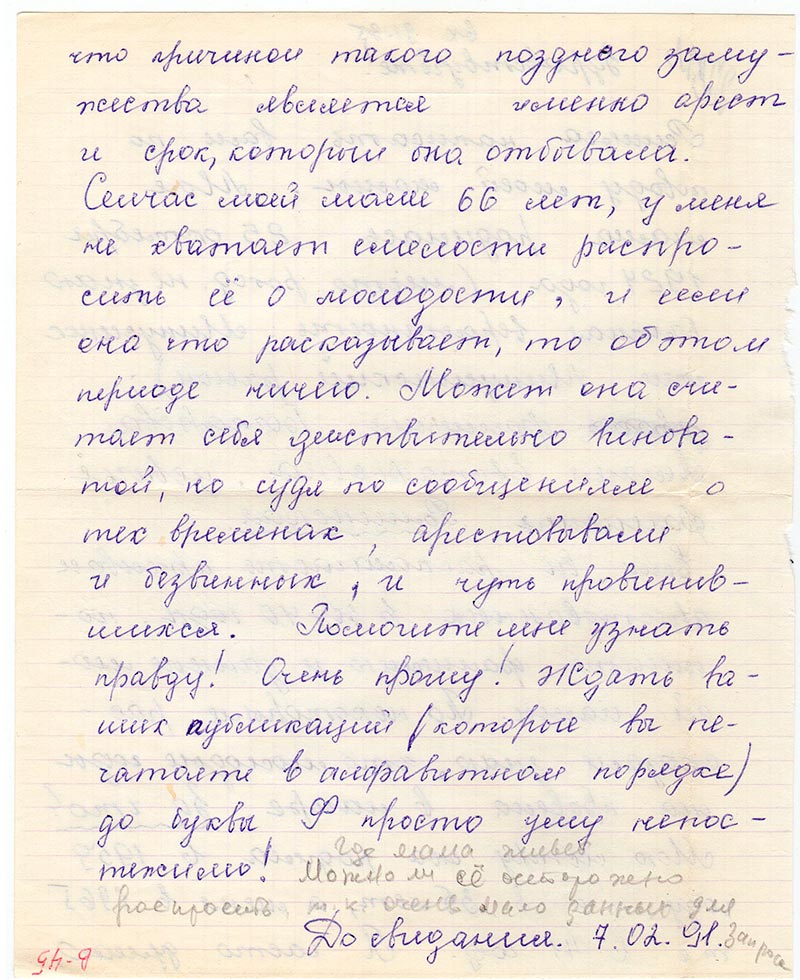 что причиной такого позднего заму-
жества является именно арест
и срок, который она отбывала.
Сейчас моей маме 66 лет, у меня
не хватает смелости распро-
сить её о молодости, и если
она что расказывает, то об этом
периоде ничего. Может она счи-
тает себя действительно винова-
той, но судя по сообщениям о
тех временах, арестовывали
и безвинных, и чуть провинив-
шихся. Помогите мне узнать
правду! Очень прошу! Ждать ва-
ших публикаций (которые вы пе-
чатаете в алфавитном порядке)
до буквы Ф просто уму непос-
тежимо! Где мама живёт
Можно ли её осторожно
распросить, т.к. очень мало данных для
запроса
До свидания. 7.02.91.
Б-45